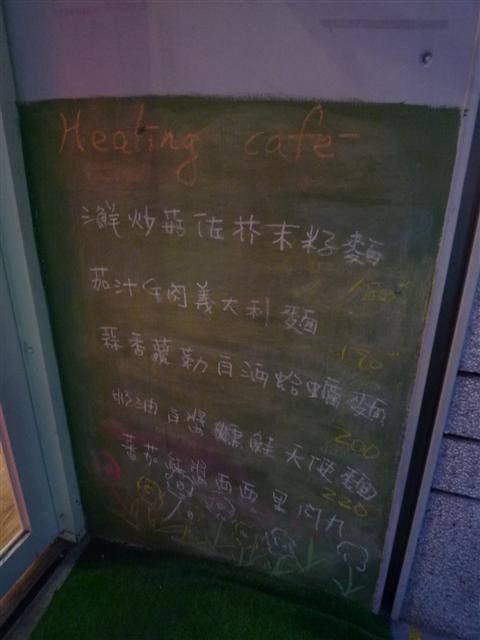 Healing cafe
鮮炒菇佐芥末籽麵
180
茄汁牛肉義大利麵
190
蒜香蘿勒白酒蛤蠣麵
200
奶油白醬燻鮭天使麵
220
蕃茄紅醬西西里肉丸